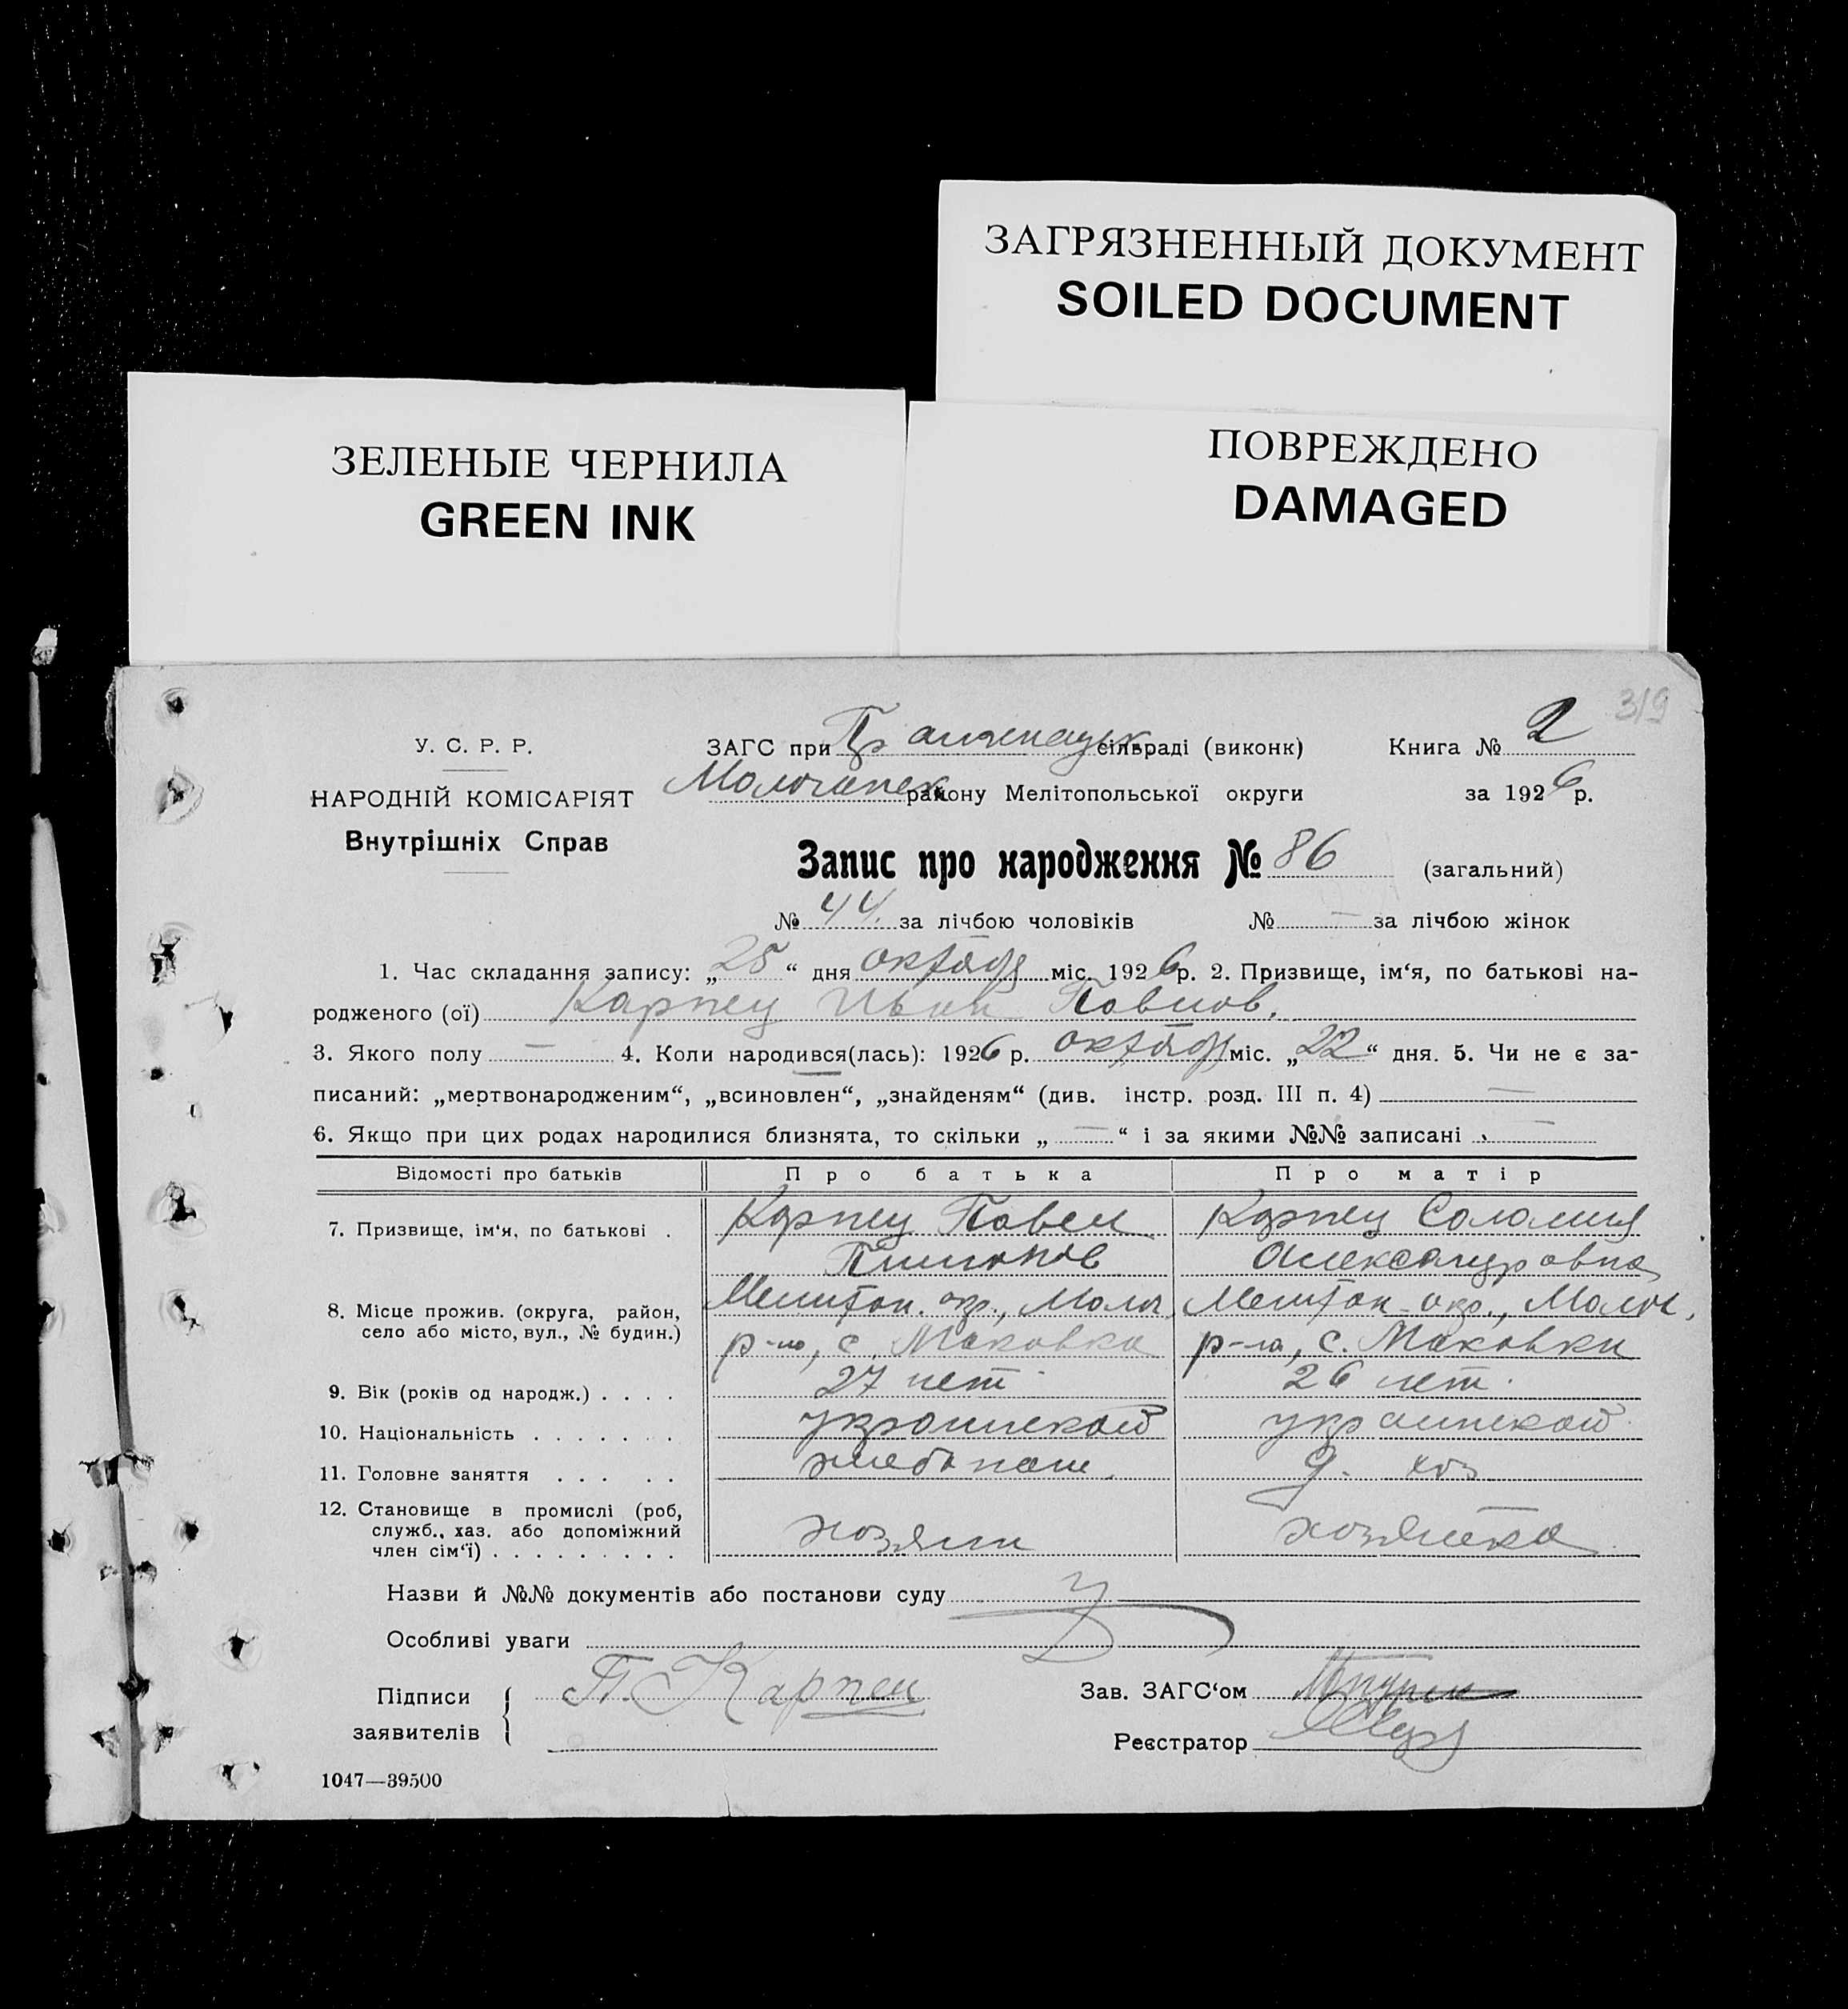 ЗАГРЯЗНЕННЫЙ ДОКУМЕНТ
SOILED DOCUMENT
ЗЕЛЕНЫЕ ЧЕРНИЛА
GREEN INK
ПОВРЕЖДЕНО
DAMAGED
319
У. С. Р. Р.
НАРОДНІЙ КОМІСАРІЯТ
Внутрішніх Справ
ЗАГС при сільраді (виконк) Книга № 2
Молочанск району Мелітопольської округи за 1926 р.
Запис про народження № 86 (загальний)
№ 44. за лічбою чоловіків № — за лічбою жінок
1. Час складання запису: „25“ дня октября міс. 1926 р. 2. Призвище, ім‘я, по батькові на-
родженого (ої) Карпец Иван Павлов.
3. Якого полу — 4. Коли народився(лась): 1926 р. октября міс. „22“ дня. 5. Чи не є за-
писаний: „мертвонародженим“, „всиновлен“, „знайденям“ (див. інстр. розд. III п. 4) —
6. Якщо при цих родах народилися близнята, то скільки „—“ і за якими №№ записані —
Відомості про батьків Про батька Про матір
7. Призвище, ім‘я, по батькові . Карпец Павел Карпец Соломия
Александровна
8. Місце прожив. (округа, район, Мелитоп. окр., Молоч. Мелитоп. окр., Молоч.
село або місто, вул., № будин.) р-на, с. Маковка р-на, с. Маковки
9. Вік (років од народж.) . . . . 27 лет 26 лет.
10. Національність . . . . . . . украинской украинской
11. Головне заняття . . . . . хлебопаш. д. хоз
12. Становище в промислі (роб,
служб., хаз. або допоміжний хозяин хозяйка
член сім‘ї) . . . . . . . . .
Назви й №№ документів або постанови суду
Особливі уваги
Підписи П. Карпец Зав. ЗАГС‘ом
заявителів Реєстратор
1047—39500